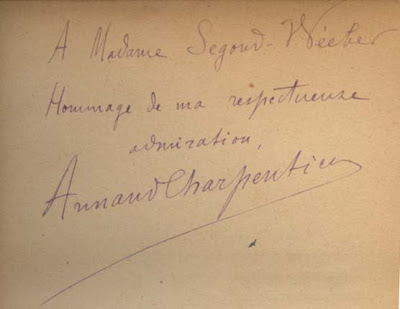 A Madame Segond-Wéeber
Hommage de ma respectueuse
admiration,
Armand Charpentier